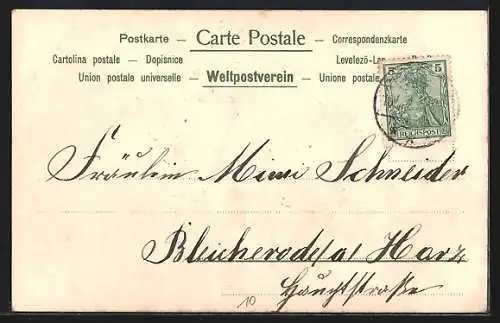 Postkarte — Carte Postale — Correspondenzkarte
Cartolina postale — Dopisnice Levelező-
Union postale universelle — Weltpostverein — Unione postale
5 5
REICHSPOST
Fräulein Mimi Schneider
Bleicherode a/ Harz
Hauptstraße
10